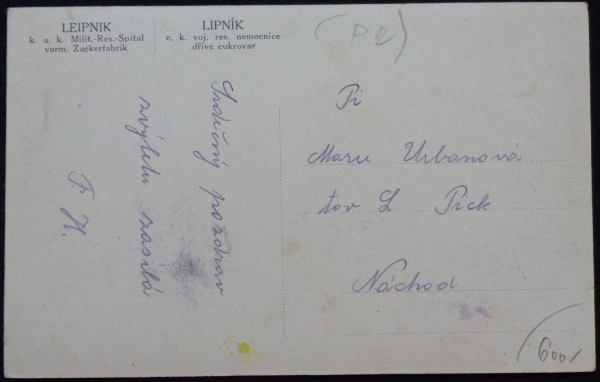 LEIPNIK
k. u. k. Milit.-Res.-Spital
vorm. Zuckerfabrik
LIPNÍK
c. k. voj. res. nemocnice
dříve cukrovar
(P2)
Srdečný pozdrav
zvýletu zasílá
F. H.
Pí
Marie Urbanová
tov L Pick
Náchod
600/